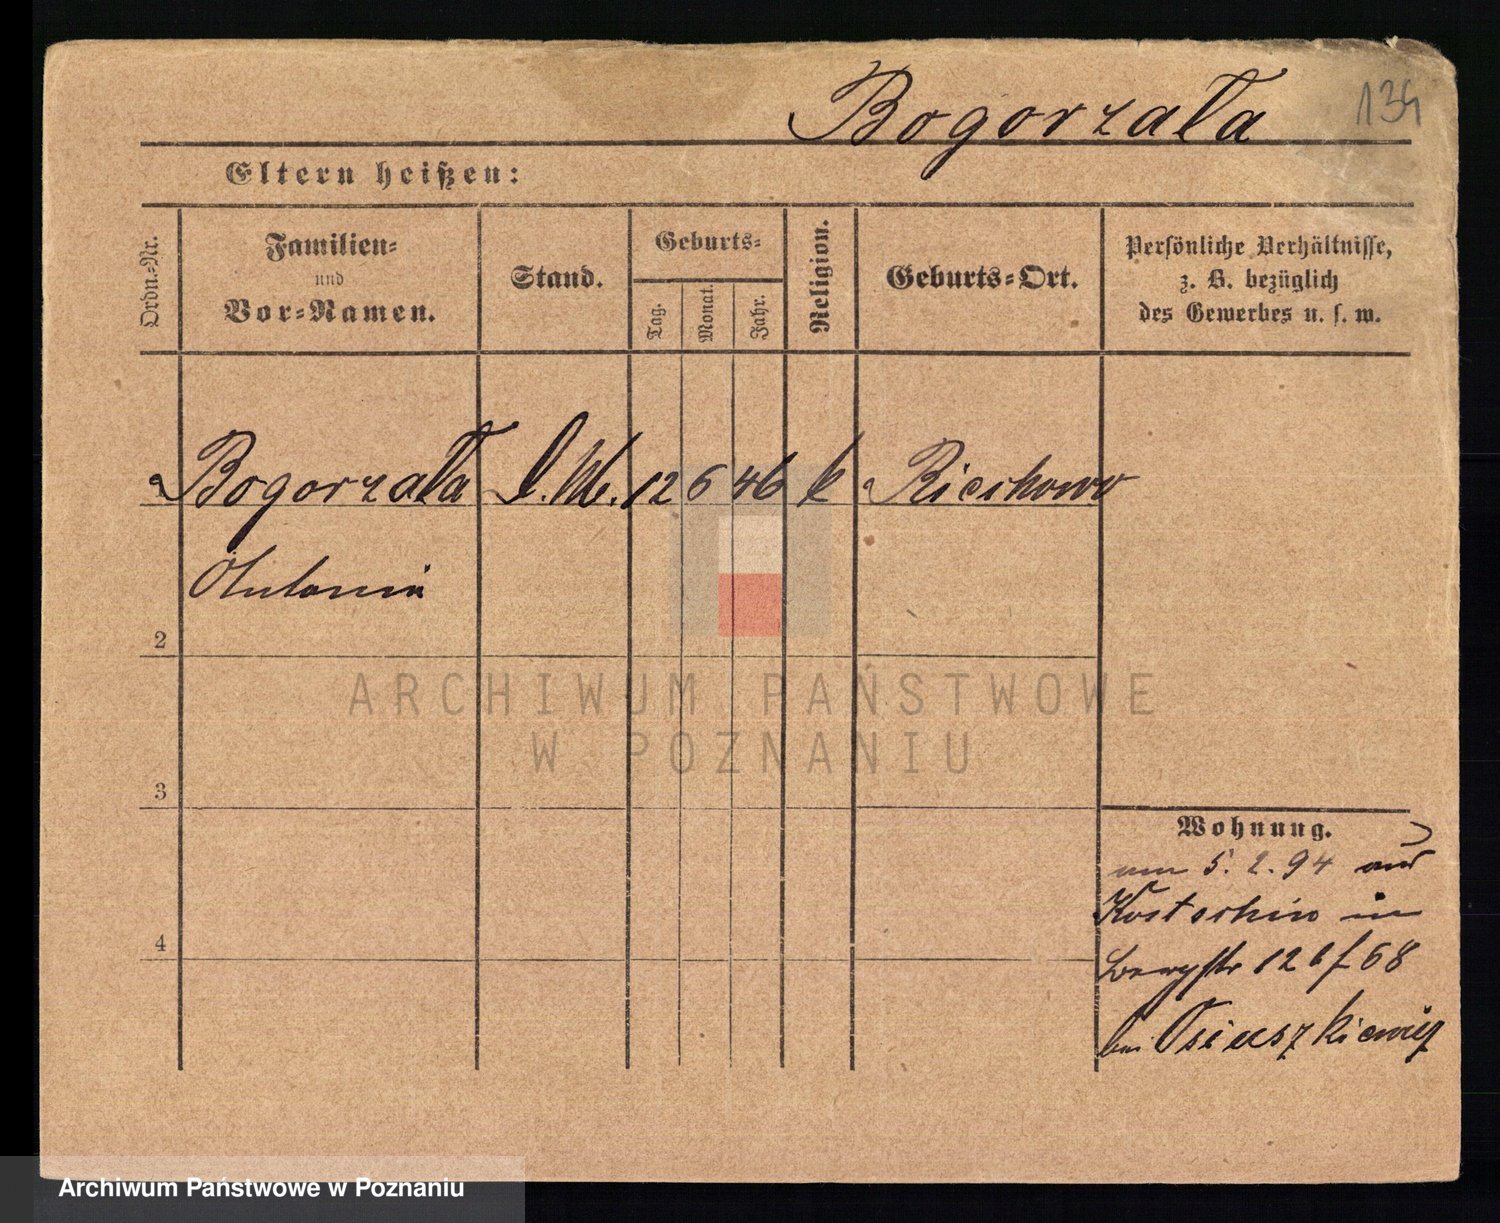 Bogorzała
134
Eltern heißen:
Ordn.-Nr.
Familien-
und
Vor-Namen.
Stand.
Geburts-
Tag.
Monat.
Jahr.
Religion.
Geburts-Ort.
Persönliche Verhältnisse,
z. B. bezüglich
des Gewerbes u. s. w.
Bogorzała 12 6 46 k
Antonia
2
3
4
Wohnung.
am 5. 2. 94 aus
Kostschin in
68
bei
ARCHIWUM PAŃSTWOWE
W POZNANIU
Archiwum Państwowe w Poznaniu